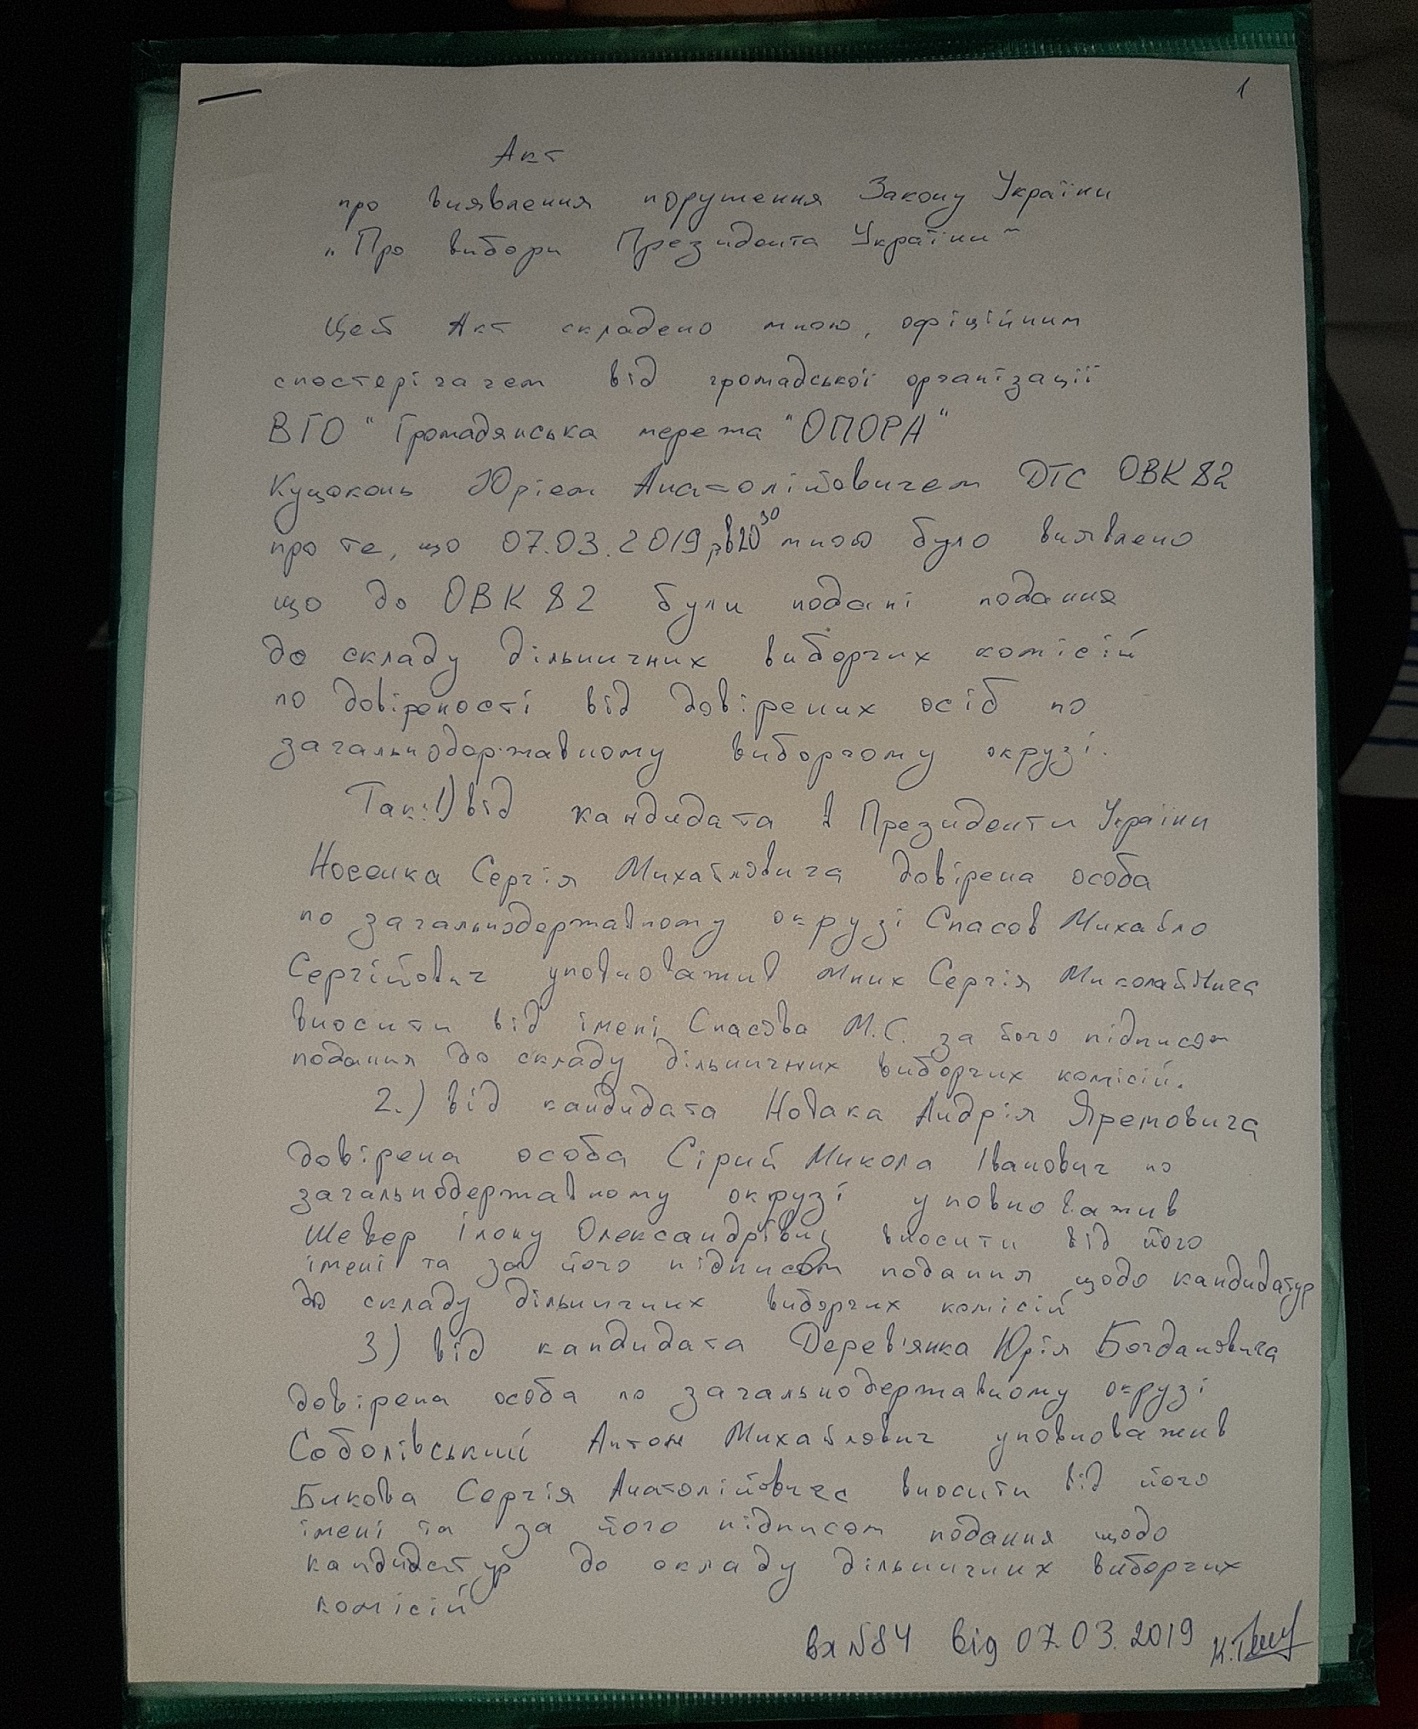 1
Акт
про виявлення порушення Закону України
„Про вибори Президента України"
Цей Акт складено мною, офіційним
спостерігачем від громадської організації
ВГО "Громадянська мережа "ОПОРА"
Куцоконь Юрієм Анатолійовичем ДТС ОВК 82
про те, що 07.03.2019, в 20³⁰ мною було виявлено
що до ОВК 82 були подані подання
до складу дільничних виборчих комісій
по довіреності від довірених осіб по
загальнодержавному виборчому окрузі.
Так: 1) від кандидата в Президенти України
Носенка Сергія Михайловича довірена особа
по загальнодержавному окрузі Спасов Михайло
Сергійович уповноважив Мник Сергія Миколайовича
вносити від імені Спасова М.С. за його підписом
подання до складу дільничних виборчих комісій.
2.) від кандидата Новака Андрія Яремовича
довірена особа Сірий Микола Іванович по
загальнодержавному окрузі уповноважив
Шевер Ілону Олександрівну вносити від його
імені та за його підписом подання щодо кандидатур
до складу дільничних виборчих комісій
3) від кандидата Дерев'янка Юрія Богдановича
довірена особа по загальнодержавному окрузі
Соболівський Антон Михайлович уповноважив
Бикова Сергія Анатолійовича вносити від його
імені та за його підписом подання щодо
кандидатур до складу дільничних виборчих
комісій
вх №84 від 07.03.2019